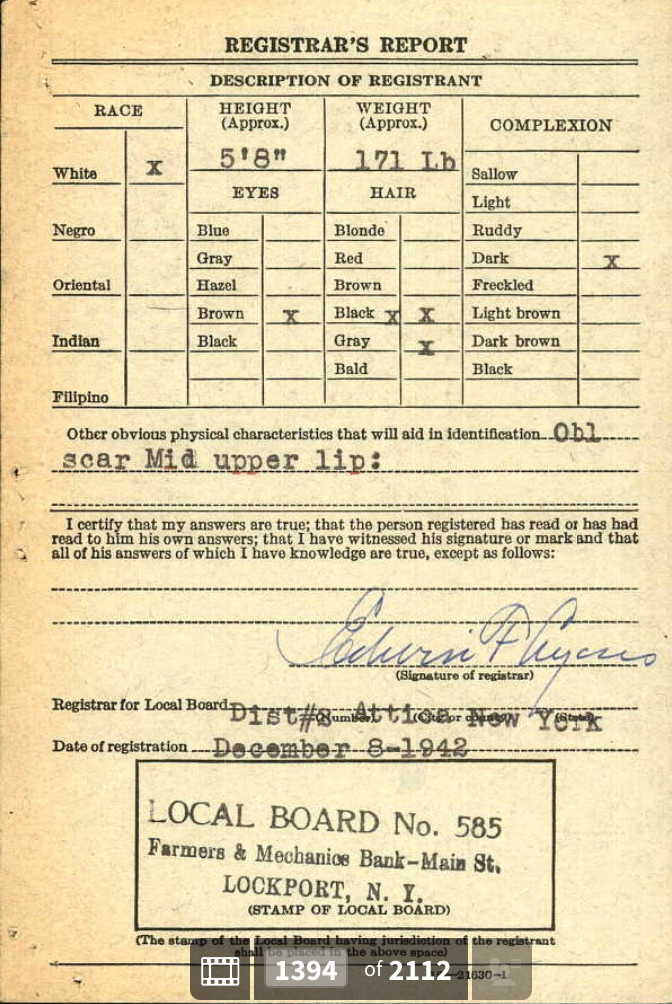 REGISTRAR'S REPORT
DESCRIPTION OF REGISTRANT
RACE
HEIGHT
(Approx.)
WEIGHT
(Approx.)
COMPLEXION
White X
5'8"
171 Lb
Sallow
EYES
HAIR
Light
Negro
Blue
Blonde
Ruddy
Gray
Red
Dark X
Oriental
Hazel
Brown
Freckled
Brown X
Black X X
Light brown
Indian
Black
Gray X
Dark brown
Bald
Black
Filipino
Other obvious physical characteristics that will aid in identification Obl
scar Mid upper lip:
I certify that my answers are true; that the person registered has read or has had
read to him his own answers; that I have witnessed his signature or mark and that
all of his answers of which I have knowledge are true, except as follows:
Edwin F
(Signature of registrar)
Registrar for Local Board Dist#2 Attica New York
(Number) (City or county) (State)
Date of registration December 8-1942
LOCAL BOARD No. 585
Farmers & Mechanics Bank-Main St.
LOCKPORT, N. Y.
(STAMP OF LOCAL BOARD)
(The stamp of the Local Board having jurisdiction of the registrant
shall be placed in the above space)
1394 of 2112
21630-1